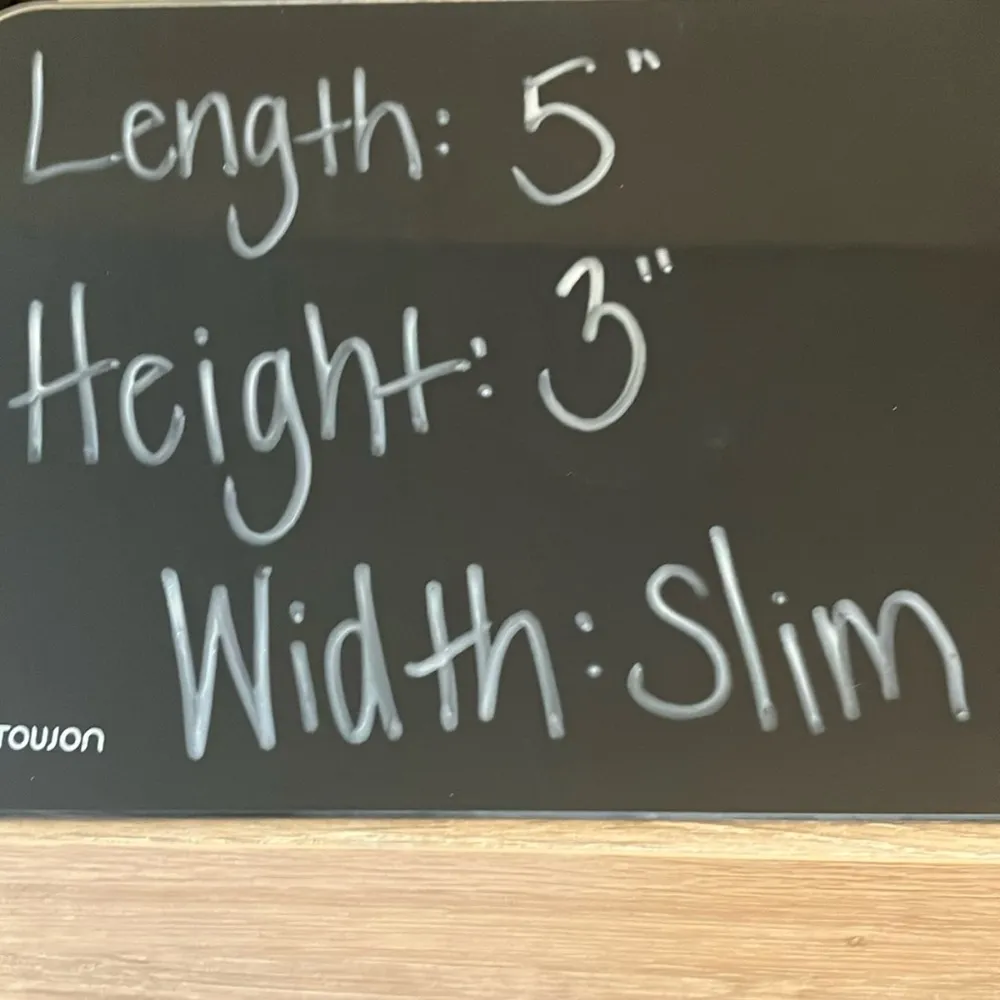 Length: 5"
Height: 3"
Width: Slim
TOUJON